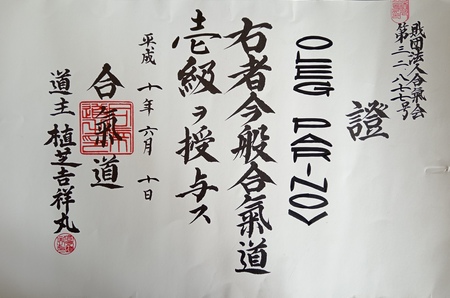 財団法人合氣会
第三二八七七号
證
OLEG PARINOV
右者今般合氣道
壱級ヲ授与ス
平成十年六月十日
合氣道
道主 植芝吉祥丸